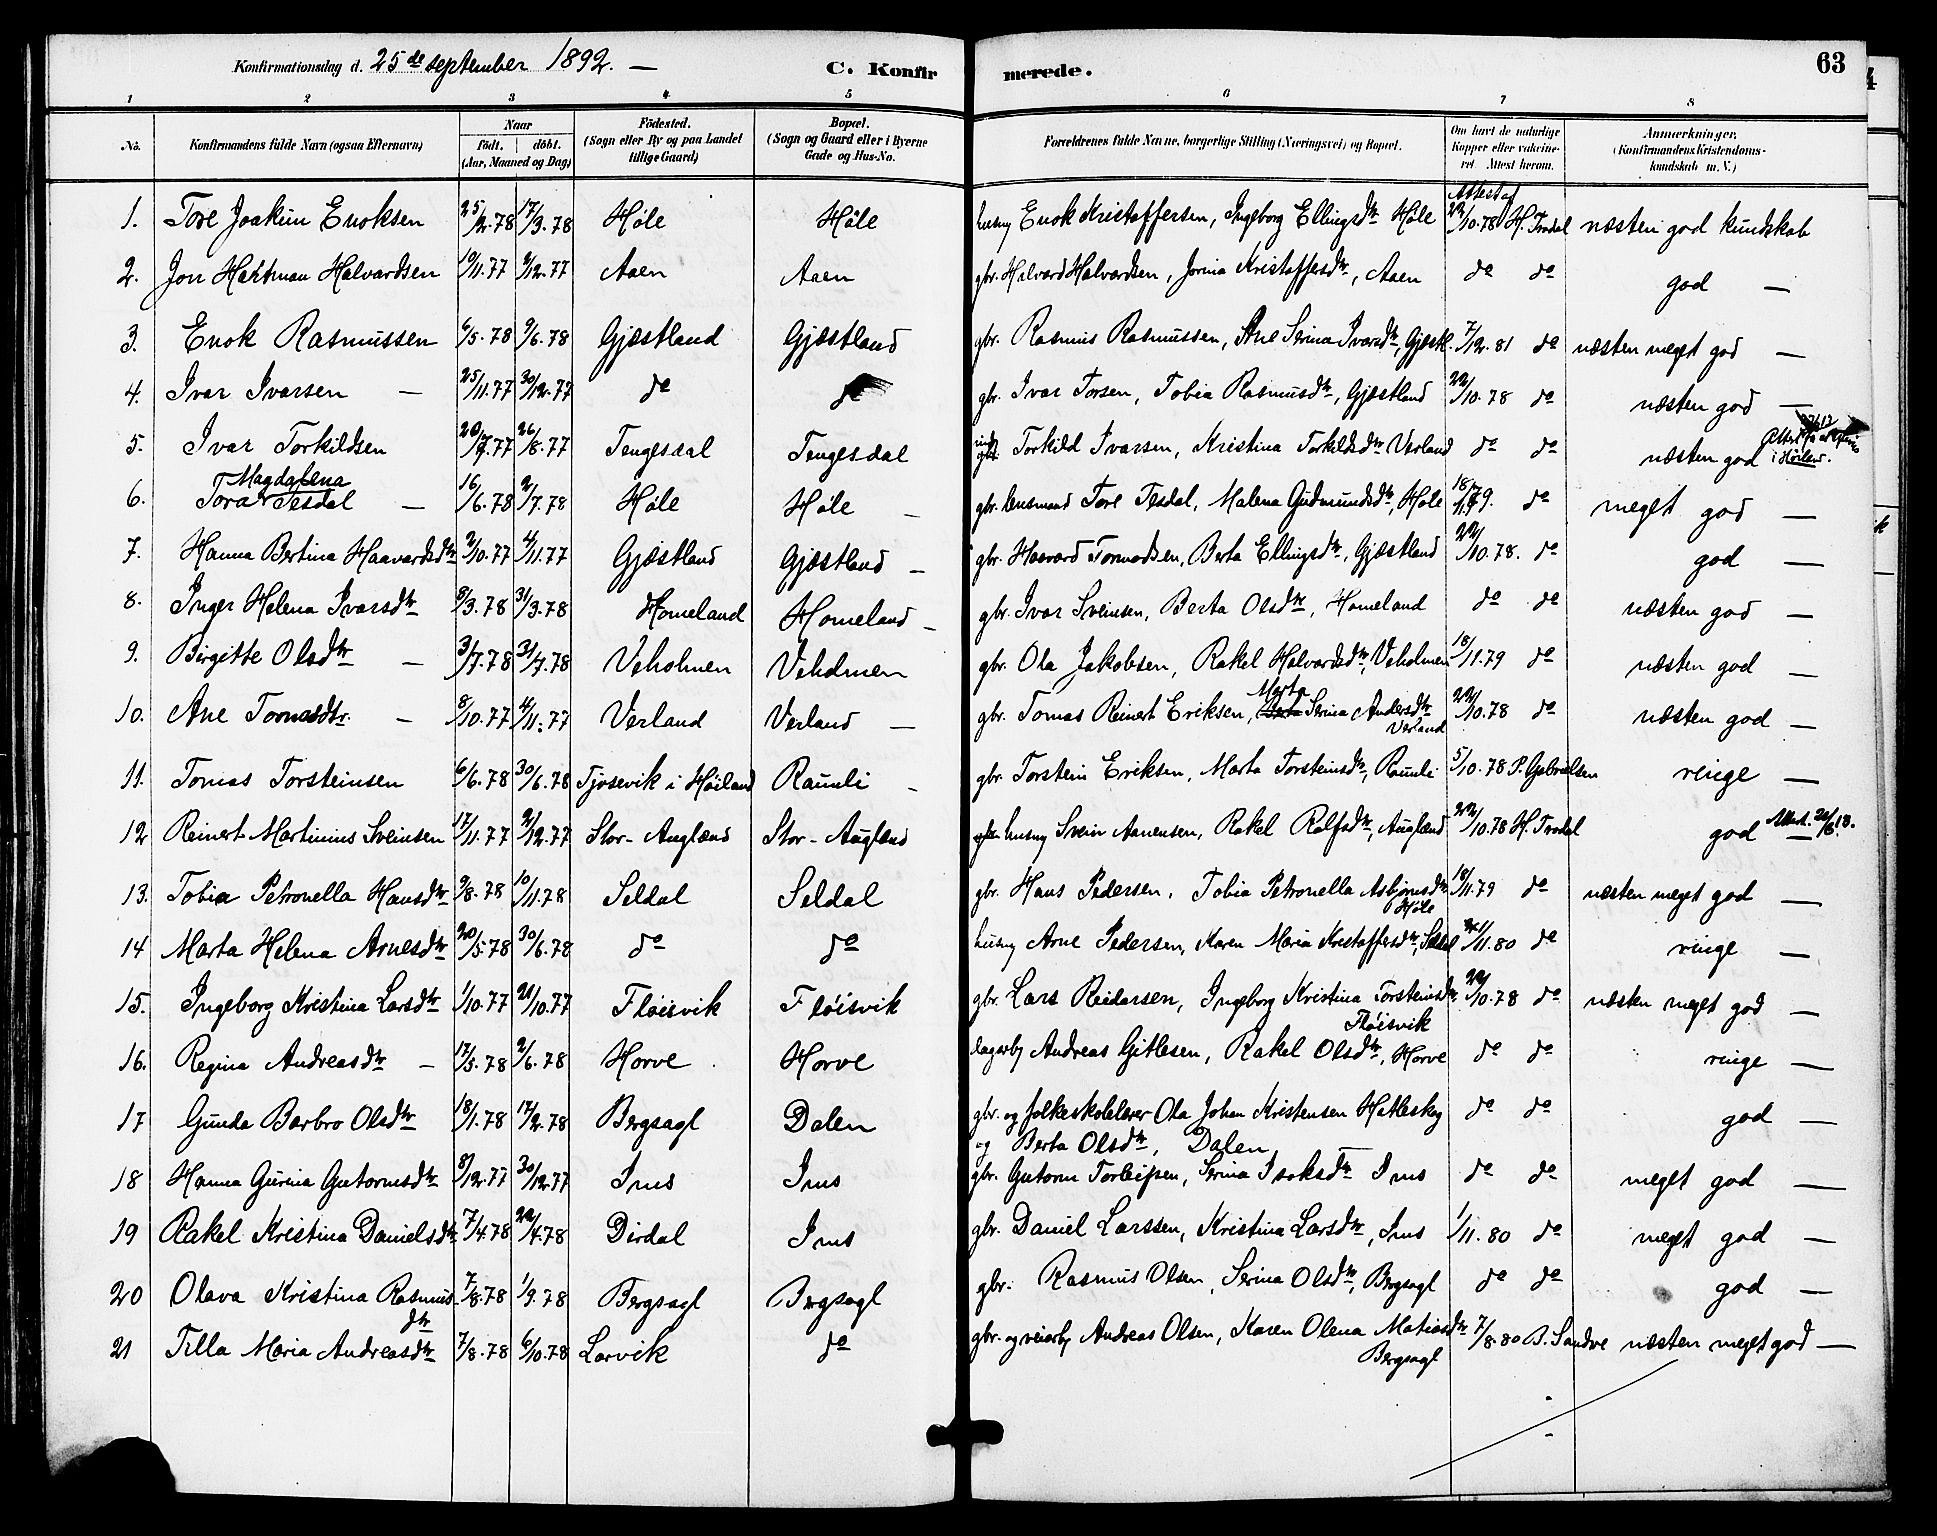 Konfirmationsdag d. 25de september 1892. — C. Konfirmerede. 63
1 2 3 4 5 6 7 8
No. Konfirmandens fulde Navn (ogsaa Efternavn) Naar födt. döbt. (Aar, Maaned og Dag) Födested. (Sogn eller By og paa Landet tillige Gaard) Bopæl. (Sogn og Gaard eller i Byerne Gade og Hus-No. Forældrenes fulde Navne, borgerlige Stilling (Næringsvei) og Bopæl. Om havt de naturlige Kopper eller vakcineret Attest herom. Anmærkninger. (Konfirmandens Kristendomskundskab m. V.)
1. Tore Joakim Enoksen 25/2.78 17/3.78 Höle Höle husmd Enok Kristoffersen, Ingeborg Ellingsdtr Höle Attest af 22/10.78 H. Tradal næsten god kundskab
2. Jon Hartman Halvardsen 19/11.77 9/12.77 Aaen Aaen gbr. Halvard Halvardsen, Jorina Kristoffersdtr, Aaen do do god —
3. Enok Rasmussen 6/5.78 9/6.78 Gjæstland Gjæstland gbr. Rasmus Rasmussen, Ane Serina Ivarsdtr, Gjæstl. 7/12.81 do næsten meget god —
4. Ivar Ivarsen — 25/11.77 30/12.77 do do gbr. Ivar Torsen, Tobia Rasmusdtr, Gjæstland 22/10.78 do næsten god —
5. Ivar Torkildsen 20/7.77 26/8.77 Tengesdal Tengesdal Torkild Ivarsen, Kristina Torkildsdtr Verland do do næsten god
6. Tora Magdalena Tesdal — 16/6.78 2/7.78 Höle Höle — gbr. lensmand Tore Tesdal, Malena Gudmundsdtr, Höle 18/11.79. do meget god —
7. Hanna Bertina Haavardsdtr 2/10.77 4/11.77 Gjæstland Gjæstland — gbr. Haavard Tormodsen, Berta Ellingsdtr, Gjæstland 22/10.78. do god —
8. Inger Helena Ivarsdtr 9/3.78 31/3.78 Homeland Homeland — gbr. Ivar Sveinsen, Berta Olsdtr, Homeland do do næsten god —
9. Birgitte Olsdtr — 3/7.78 31/7.78 Veholmen Veholmen gbr. Ola Jakobsen, Rakel Halvardsdtr, Veholmen 18/11.79 do næsten god —
10. Ane Tomasdtr. — 8/10.77 4/11.77 Verland Verland — gbr. Tomas Reinert Eriksen, Marta Serina Andersdtr Verland 22/10.78 do næsten god —
11. Tomas Torsteinsen 6/6.78 30/6.78 Tjosevik i Höiland Raunli gbr. Torstein Eriksen, Marta Torsteinsdtr, Raunli 5/10.78 P. Gabrielsen ringe —
12 Reinert Martinius Sveinsen 17/11.77 2/12.77 Stor-Auglænd Stor-Auglænd husmd Svein Aanensen, Rakel Rolfsdtr, Auglænd 22/10.78 H. Tradal god Attest. 20/8.18.
13. Tobia Petronella Hansdtr 9/8.78 10/11.78 Seldal Seldal gbr. Hans Pedersen, Tobia Petronella Asbjörnsdtr Höle 18/11.79 do næsten meget god —
14 Marta Helena Arnesdtr 20/5.78 30/6.78 do do husmd Arne Pedersen, Karen Maria Kristoffersdtr, Seldal /11.80 do ringe —
15. Ingeborg Kristina Larsdtr 1/10.77 21/10.77 Flöisvik Flöisvik gbr. Lars Reidarsen, Ingeborg Kristina Torsteinsdtr Flöisvik 22/10.78 do næsten meget god —
16. Regina Andreasdtr — 17/3.78 2/6.78 Horve Horve dagarb Andreas Gitlesen, Rakel Olsdtr, Horve do do ringe —
17 Gunda Barbro Olsdtr 18/1.78 17/2.78 Bergsagl Dalen gbr. og folkeskolelærer Ola Johan Kristensen Hatleskog
og Berta Olsdtr, Dalen do do god —
18 Hanna Gurina Gutormsdtr 8/12.77 30/12.77 Ims Ims gbr. Gutorm Torleifsen, Serina Isaksdtr Ims do do meget god —
19 Rakel Kristina Danielsdtr 7/4.78 22/4.78 Dirdal Ims gbr. Daniel Larssen, Kristina Larsdtr, Ims 1/11.80 do meget god —
20 Olava Kristina Rasmusdtr 7/8.78 1/9.78 Bergsagl Bergsagl gbr. Rasmus Olsen, Serina Olsdtr, Bergsagl do do god —
21 Tilla Maria Andreasdtr 7/8.78 6/10.78 Larvik do gbr. og veiarb Andreas Olsen, Karen Olena Matiasdtr Bergsagl 7/8.80 B. Sandve næsten meget god —